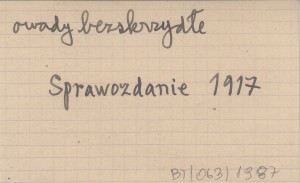 owady bezskrzydłe
Sprawozdanie 1917
BT/063/1387